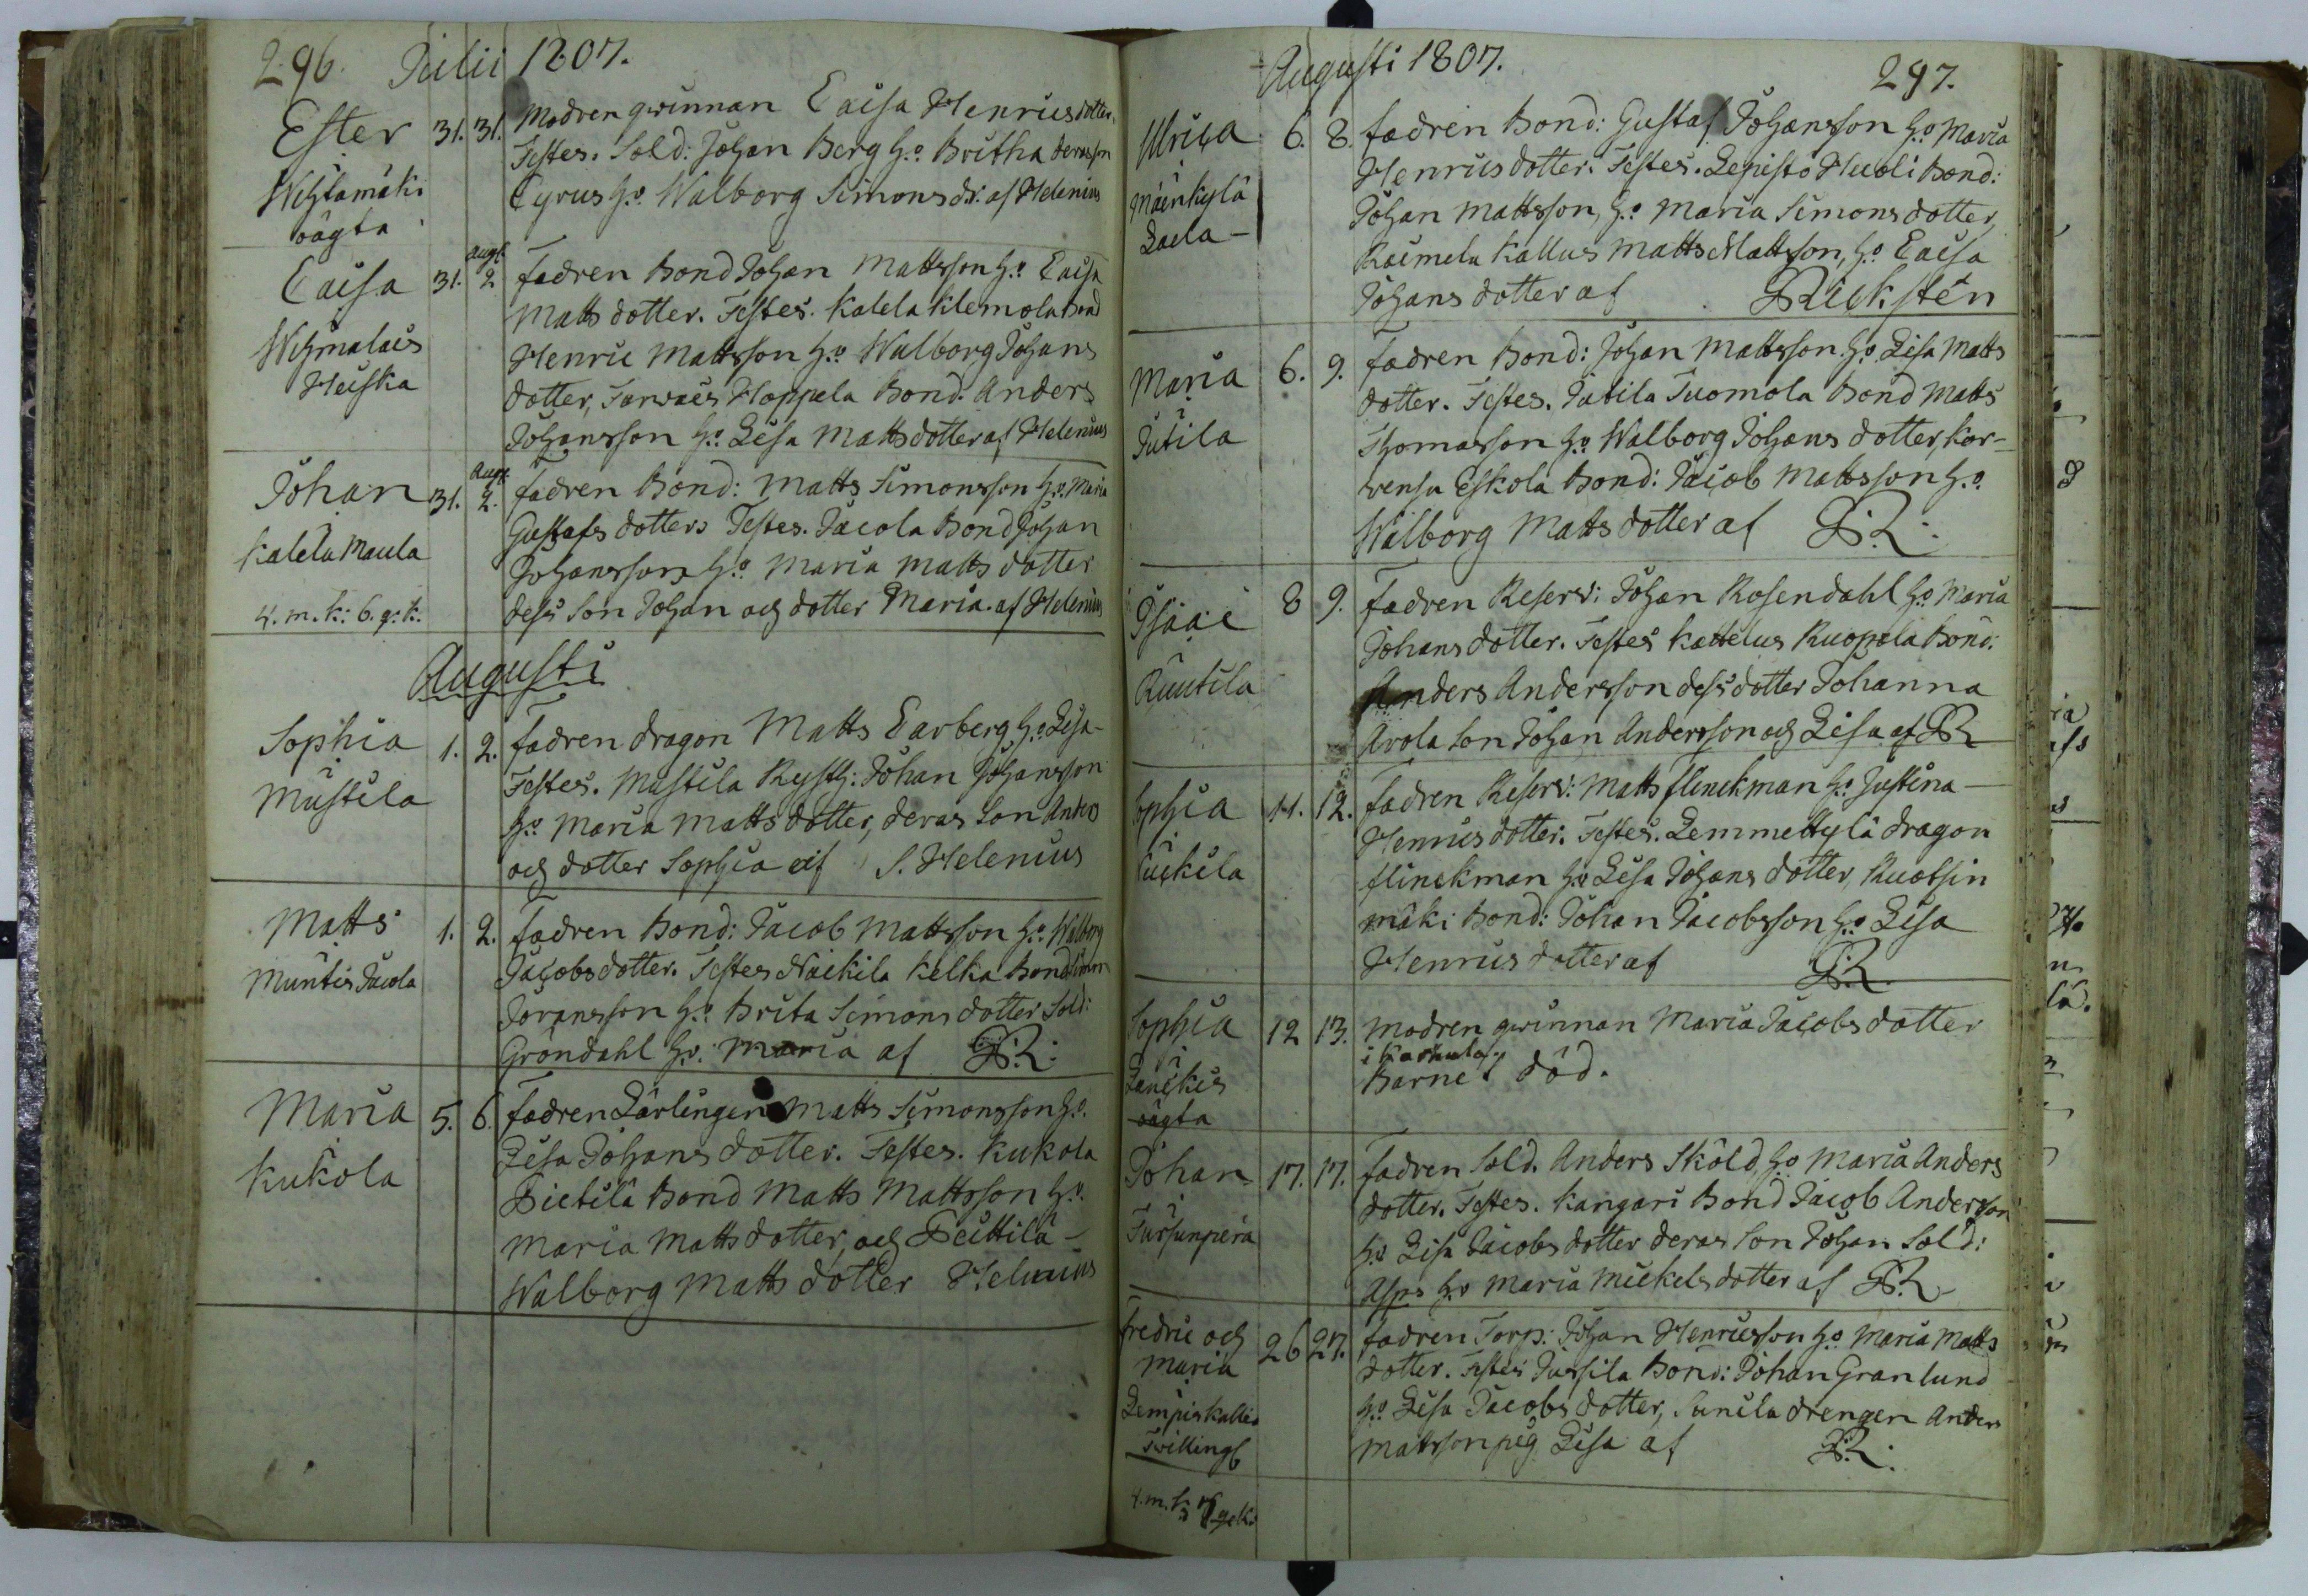 296. Julii 1807.
Ester 31. 31. Modren qwinnan Caisa Henricsdotter.
Testes. Sold: Johan Berg H:o Britha deras son
Wihtamäki Cyrus H:o Walborg Simonsdr. af Helenius
oägta
Caisa 31. Aug. 2 Fadren Bond Johan Mattsson H:o Caisa
Matts dotter. Testes. Kalela Klemola Bond
Wihmalais Henric Mattsson H:o Walborg Johans
Heiska dotter, Tarvais Hoppela Bond. Anders
Johansson H:o Lisa Mattsdotter af Helenius
Johan 31. Aug. 2. Fadren Bond: Matts Simonsson H:o Maria
Gustafs dotter Testes. Jacola Bond Johan
Kalela Maula Johansson H:o Maria Matts dotter
4. m. k: 6. q: k. dess Son Johan och dotter Maria. af Helenius
Augusti
Sophia 1. 2. Fadren dragon Matts Carberg H:o Lisa
Testes. Mustila Rysth: Johan Johansson
Mustila H:o Maria Matts dotter, deras Son Anders
och dotter Sophia af S. Helenius
Matts 1. 2. Fadren Bond: Jacob Mattsson H:o Walborg
Muntis Jacola Jacobsdotter. Testes Naikila Kelka Bond Simon
Joransson H:o Brita Simons dotter Sold:
Gröndahl H:o Maria af P:R:
Maria 5. 6. Fadren Lärlingen Matts Simonsson H:o
Lisa Johans dotter. Testes. Kukola
Kukola Pietilä Bond Matts Mattsson H:o
Maria Matts dotter, och Peittilä
Walborg Matts dotter Helenius
Augusti 1807. 297.
Ulrica 6. 8. Fadren Bond: Gustaf Johansson H:o Maria
Henrics dotter. Testes. Lepistö Huoli Bond:
Mäenkylä Johan Mattsson, H:o Maria Simons dotter,
Laela Raimela Kallus Matts Mattsson, H:o Caisa
Johans dotter af PRickstén
Maria 6. 9. Fadren Bond: Johan Mattsson H:o Lisa Matts
dotter. Testes. Jutila Tuomola Bond Matts
Jutila Thomasson H:o Walborg Johans dotter, Kor-
vensu Eskola Bond: Jacob Mattsson H:o
Walborg Matts dotter af P:R:
Isaac 8 9. Fadren Reserv: Johan Rosendahl H:o Maria
Johans dotter. Testes Kattelus Ruopela Bond:
Ruutila Anders Andersson dess dotter Johanna
Arola Son Johan Andersson och Lisa af PR
Sophia 11. 12. Fadren Reserv: Matts Flinckman H:o Justina
Henrics dotter. Testes. Lemmettylä dragon
Flinckman H:o Lisa Johans dotter, Ruotsin
mäki Bond: Johan Jacobsson H:o Lisa
Henrics dotter af P:R.
Sophia 12 13. Modren qwinnan Maria Jacobs dotter
i Karhula
Barnet död.
oägta
Johan 17. 17. Fadren Sold. Anders Sköld, H:o Maria Anders
dotter. Testes. Kangari Bond Jacob Andersson
Tursunperä H:o Lisa Jacobs dotter deras Son Johan Sold:
Asps H:o Maria Mickelsdotter af P.R.
Fredric och 26 27. Fadren Torp: Johan Henricsson H:o Maria Matts
Maria dotter. Testes Jussila Bond: Johan Granlund
Lempiskallio H:o Lisa Jacobs dotter, Sunila drengen Anders
Twilling Mattsson pig. Lisa af P.R.